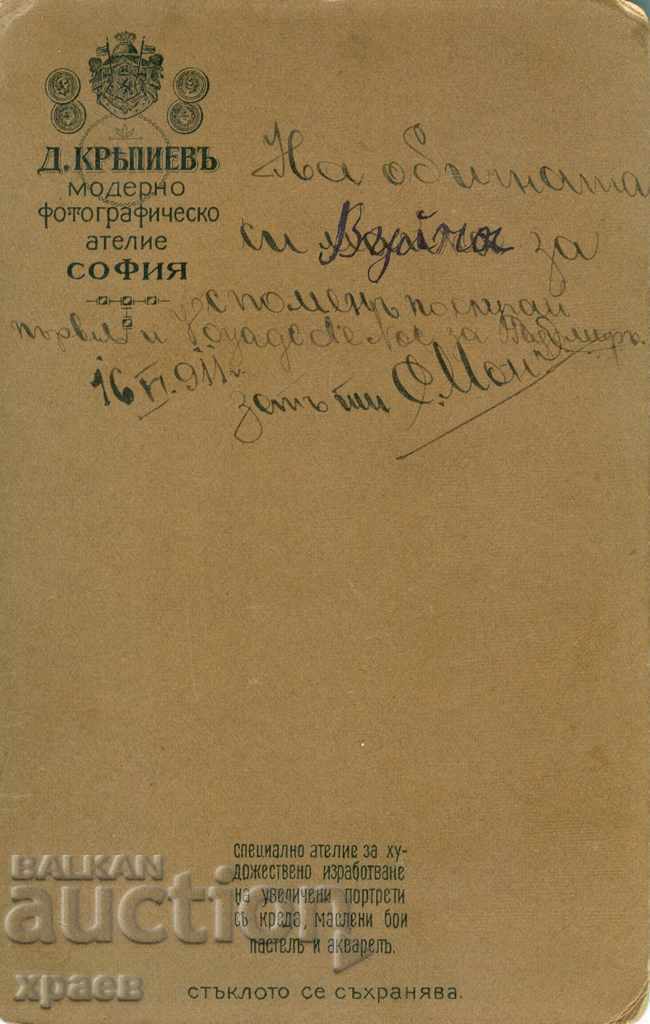 Д. КРѢПИЕВЪ
МОДЕРНО
ФОТОГРАФИЧЕСКО
АТЕЛИЕ
СОФИЯ
На обичната
си за
споменъ
първа и за
16 VI. 911 г.
СПЕЦИАЛНО АТЕЛИЕ ЗА ХУ-
ДОЖЕСТВЕНО ИЗРАБОТВАНЕ
НА УВЕЛИЧЕНИ ПОРТРЕТИ
СЪ КРЕДА, МАСЛЕНИ БОИ
ПАСТЕЛЪ И АКВАРЕЛЪ.
СТЪКЛОТО СЕ СЪХРАНЯВА.
BALKAN
auction
храев